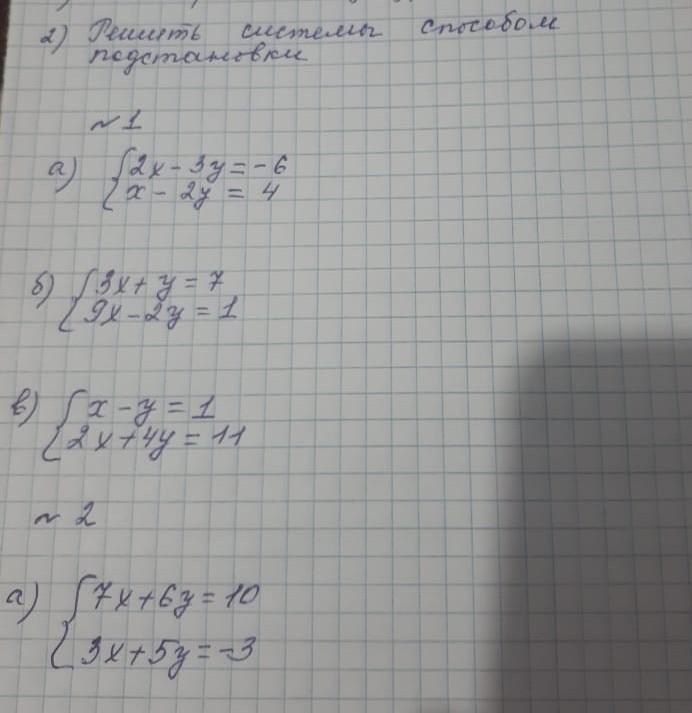 2) Решить системы способом
подстановки
~ 1
а) { 2x - 3y = -6
x - 2y = 4
б) { 3x + y = 7
9x - 2y = 1
в) { x - y = 1
2x + 4y = 11
~ 2
а) { 7x + 6y = 10
3x + 5y = -3